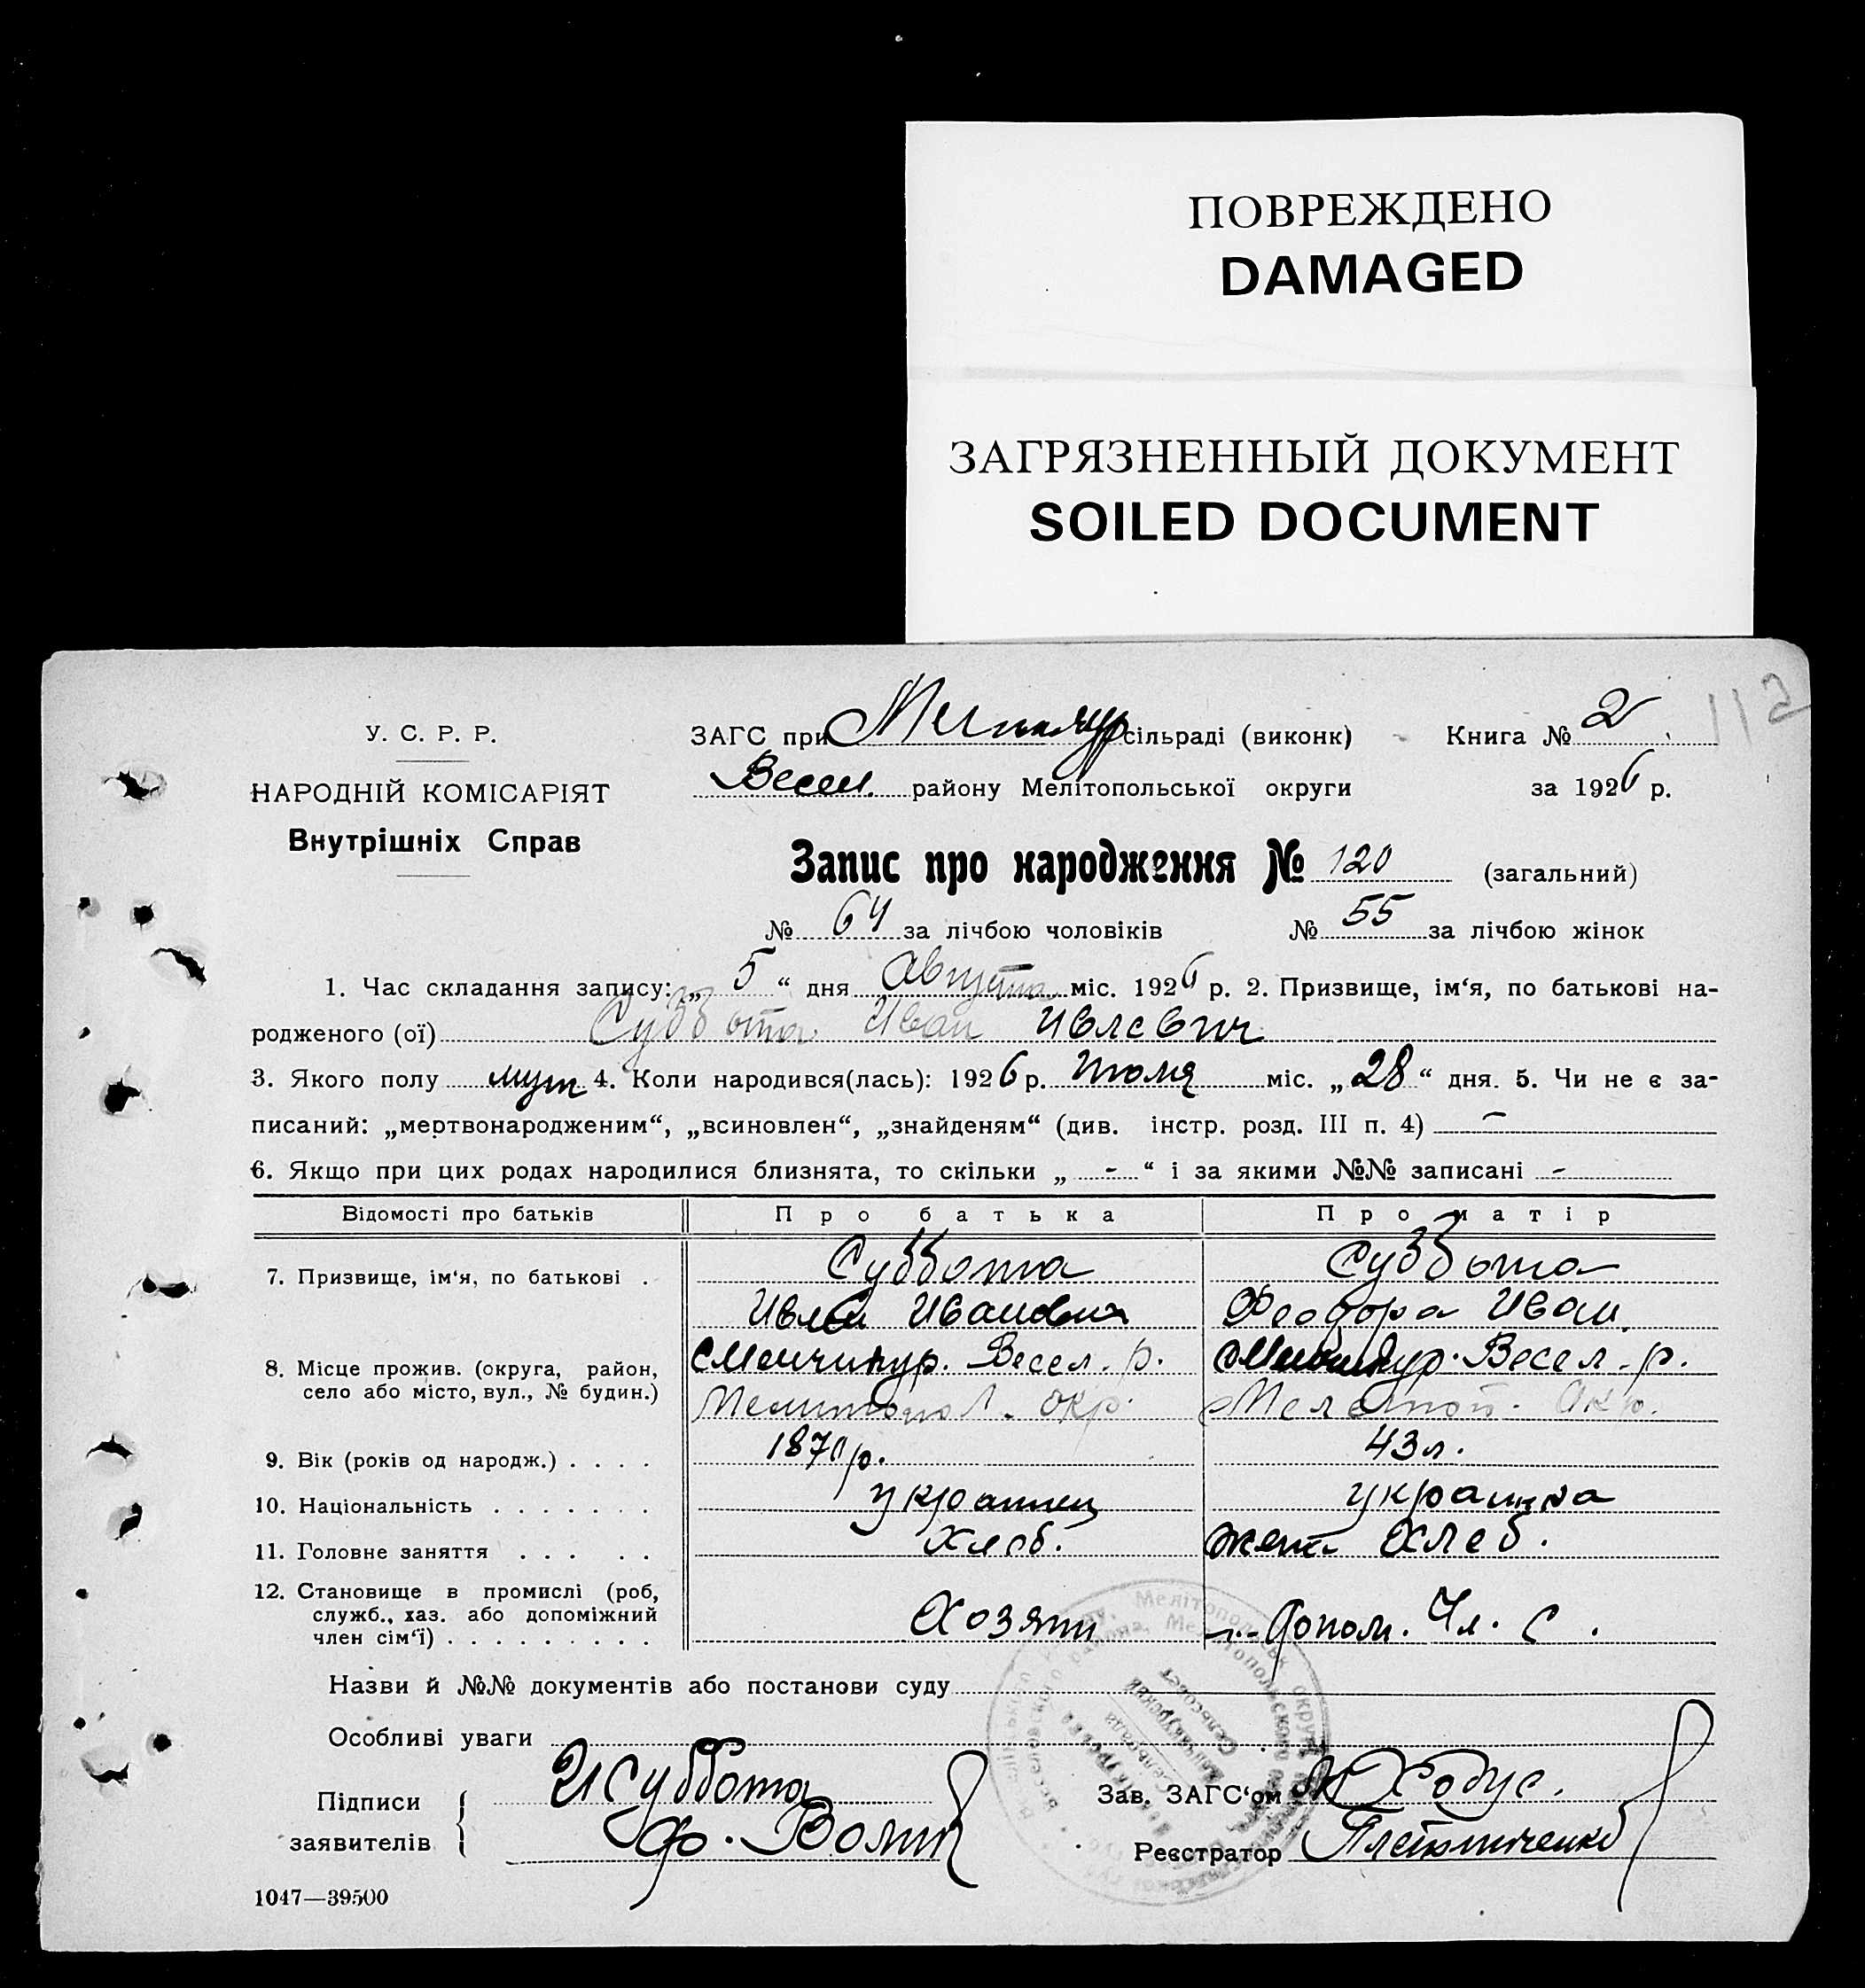 ПОВРЕЖДЕНО
DAMAGED
ЗАГРЯЗНЕННЫЙ ДОКУМЕНТ
SOILED DOCUMENT
112
У. С. Р. Р.
ЗАГС при сільраді (виконк) Книга № 2
НАРОДНІЙ КОМІСАРІЯТ
Весел. району Мелітопольської округи за 1926 р.
Внутрішніх Справ
Запис про народження № 120 (загальний)
№ 64 за лічбою чоловіків № 55 за лічбою жінок
1. Час складання запису: „ 5 “ дня Августа міс. 1926 р. 2. Призвище, ім‘я, по батькові на-
родженого (ої) Суббота Иван Ивлевич
3. Якого полу муж 4. Коли народився(лась): 1926 р. Июля міс. „ 28 “ дня. 5. Чи не є за-
писаний: „мертвонародженим“, „всиновлен“, „знайденям“ (див. інстр. розд. III п. 4) —
6. Якщо при цих родах народилися близнята, то скільки „ - “ і за якими №№ записані -
Відомості про батьків Про батька Про матір
7. Призвище, ім‘я, по батькові . Суббота Суббота
Ивлей Иванович Феодора Иван.
8. Місце прожив. (округа, район, село або місто, вул., № будин.) Менчикур. Весел. р. Менчикур. Весел. р.
Мелитопол. окр. Мелитоп. Окр.
9. Вік (років од народж.) . . . . 1870 р. 43 л.
10. Національність . . . . . . . украинец украинка
11. Головне заняття . . . . . Хлеб. жена Хлеб.
12. Становище в промислі (роб, служб., хаз. або допоміжний член сім‘ї) . . . . . . . . . Хозяин Допом. Чл. С.
Назви й №№ документів або постанови суду
Особливі уваги
Підписи заявителів { И Суббота
Зав. ЗАГС‘ом Ходус.
Ф.
Реєстратор
1047—39500